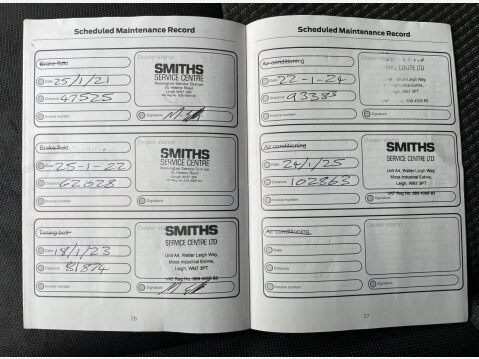 Scheduled Maintenance Record
Brake fluid
Dealer stamp
Date 25/1/21
Distance 47525
Invoice number
Signature
SMITHS
SERVICE CENTRE
Pennington Service Station
St Helens Road
Leigh WN7 3PA
Brake fluid
Dealer stamp
Date 25-1-22
Distance 62028
Invoice number
Signature
SMITHS
SERVICE CENTRE
Pennington Service Station
St Helens Road
Timing belt
Dealer stamp
Date 18/1/23
Distance 81874
Invoice number
Signature
SMITHS
SERVICE CENTRE LTD
Unit A4, Walter Leigh Way,
Moss Industrial Estate,
Leigh, WN7 3PT
VAT Reg No:
26
Scheduled Maintenance Record
Air conditioning
Dealer stamp
Date 22-1-24
Distance 93385
Invoice number
Signature
CENTRE LTD
Walter Leigh Way,
Industrial Estate,
WN7 3PT
Air conditioning
Dealer stamp
Date 24/1/25
Distance 102863
Invoice number
Signature
SMITHS
SERVICE CENTRE LTD
Unit A4, Walter Leigh Way,
Moss Industrial Estate,
Leigh, WN7 3PT
VAT Reg No:
Air conditioning
Dealer stamp
Date
Distance
Invoice number
Signature
27